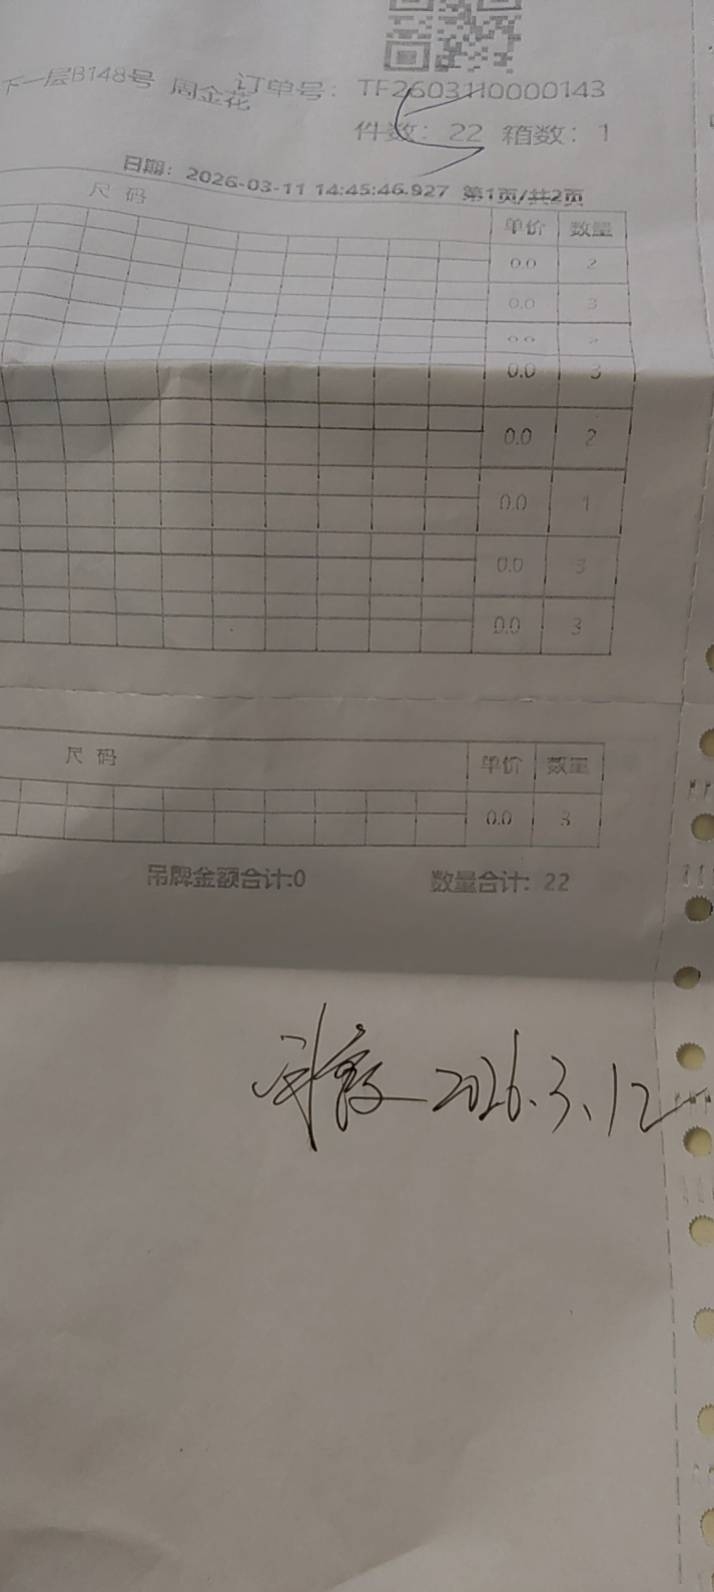 下一层B148号 周金花 订单号：TF26031I0000143
件数：22 箱数：1
日期：2026-03-11 14:45:46.927 第1页/共2页
尺 码 单价 数量
0.0 2
0.0 3
0.0 2
0.0 3
0.0 2
0.0 1
0.0 3
0.0 3
尺 码 单价 数量
0.0 3
吊牌金额合计:0 数量合计：22
2026.3.12